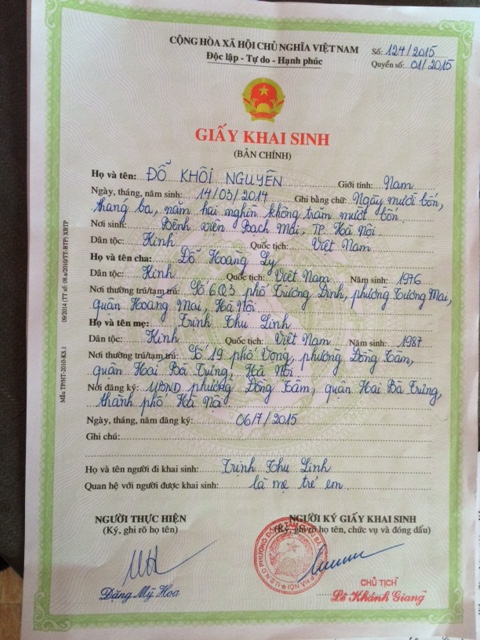 CỘNG HÒA XÃ HỘI CHỦ NGHĨA VIỆT NAM
Độc lập - Tự do - Hạnh phúc
Số: 124/2015
Quyển số: 01/2015
GIẤY KHAI SINH
(BẢN CHÍNH)
Họ và tên: ĐỖ KHÔI NGUYÊN Giới tính: Nam
Ngày, tháng, năm sinh: 14/03/2014 Ghi bằng chữ: Ngày mười bốn,
tháng ba, năm hai nghìn không trăm mười bốn.
Nơi sinh: Bệnh viện Bạch Mai, TP. Hà Nội
Dân tộc: Kinh Quốc tịch: Việt Nam
Họ và tên cha: Đỗ Hoàng Ly
Dân tộc: Kinh Quốc tịch: Việt Nam Năm sinh: 1976
Nơi thường trú/tạm trú: Số 603 phố Trương Định, phường Tương Mai,
quận Hoàng Mai, Hà Nội
Họ và tên mẹ: Trịnh Thu Linh
Dân tộc: Kinh Quốc tịch: Việt Nam Năm sinh: 1987
Nơi thường trú/tạm trú: Số 19 phố Vọng, phường Đồng Tâm,
quận Hai Bà Trưng, Hà Nội
Nơi đăng ký: UBND phường Đồng Tâm, quận Hai Bà Trưng,
thành phố Hà Nội
Ngày, tháng, năm đăng ký: 06/7/2015
Ghi chú:
Họ và tên người đi khai sinh: Trịnh Thu Linh
Quan hệ với người được khai sinh: là mẹ trẻ em
NGƯỜI THỰC HIỆN
(Ký, ghi rõ họ tên)
Đặng Mỹ Hoa
NGƯỜI KÝ GIẤY KHAI SINH
(Ký, ghi rõ họ tên, chức vụ và đóng dấu)
CHỦ TỊCH
Lê Khánh Giang